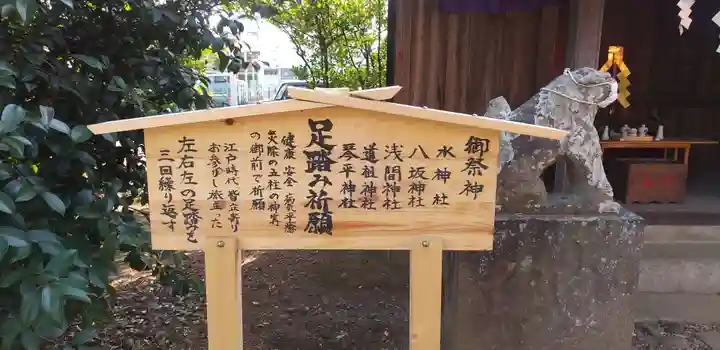 御祭神
水神社
八坂神社
浅間神社
道祖神社
琴平神社
足踏み祈願
健康 安全
矢除の五柱の神異
の御前で祈願
江戸時代 皆立寄り
お参りし旅立った
左右左の足踏みを
三回繰り返す